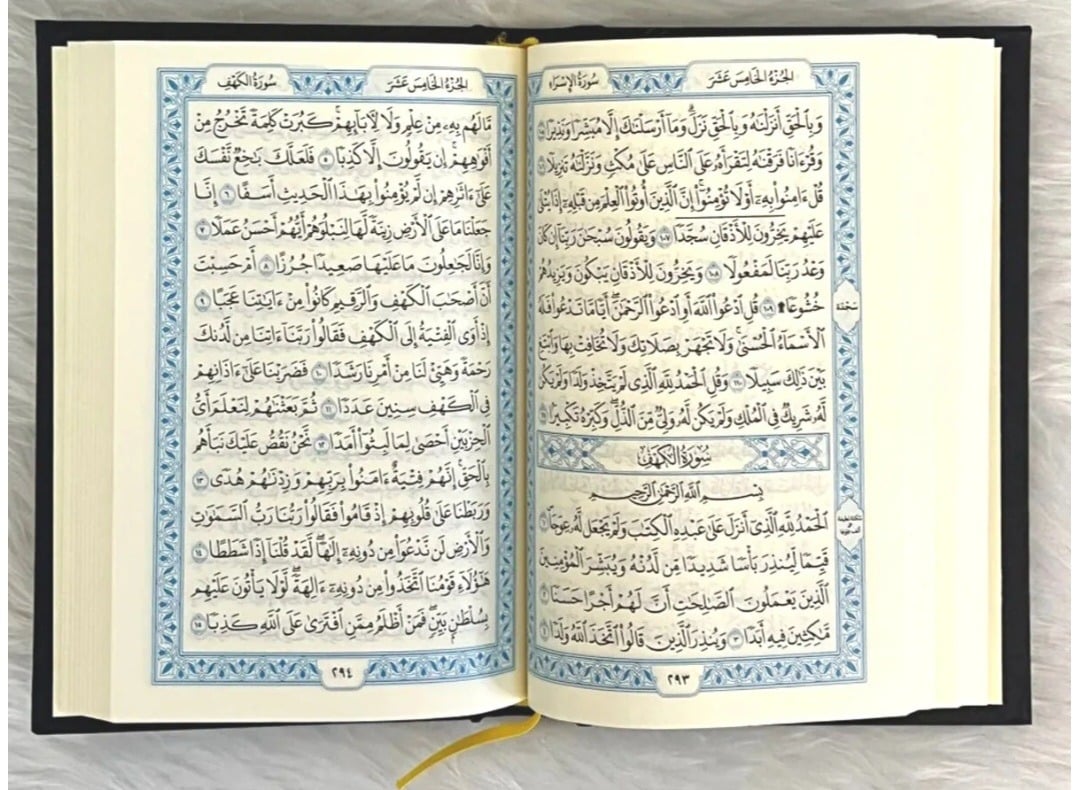 سُورَةُ الإِسْرَاءِ
الجُزْءُ الخَامِسَ عَشَرَ
وَبِٱلْحَقِّ أَنزَلْنَٰهُ وَبِٱلْحَقِّ نَزَلَ ۗ وَمَآ أَرْسَلْنَٰكَ إِلَّا مُبَشِّرًا وَنَذِيرًا ١٠٥
وَقُرْءَانًا فَرَقْنَٰهُ لِتَقْرَأَهُۥ عَلَى ٱلنَّاسِ عَلَىٰ مُكْثٍ وَنَزَّلْنَٰهُ تَنزِيلًا ١٠٦
قُلْ ءَامِنُوا۟ بِهِۦٓ أَوْ لَا تُؤْمِنُوٓا۟ ۚ إِنَّ ٱلَّذِينَ أُوتُوا۟ ٱلْعِلْمَ مِن قَبْلِهِۦٓ إِذَا يُتْلَىٰ
عَلَيْهِمْ يَخِرُّونَ لِلْأَذْقَانِ سُجَّدًا ١٠٧ وَيَقُولُونَ سُبْحَٰنَ رَبِّنَآ إِن كَانَ
وَعْدُ رَبِّنَا لَمَفْعُولًا ١٠٨ وَيَخِرُّونَ لِلْأَذْقَانِ يَبْكُونَ وَيَزِيدُهُمْ
خُشُوعًا ۩ ١٠٩ قُلِ ٱدْعُوا۟ ٱللَّهَ أَوِ ٱدْعُوا۟ ٱلرَّحْمَٰنَ ۖ أَيًّا مَّا تَدْعُوا۟ فَلَهُ
ٱلْأَسْمَآءُ ٱلْحُسْنَىٰ ۚ وَلَا تَجْهَرْ بِصَلَاتِكَ وَلَا تُخَافِتْ بِهَا وَٱبْتَغِ
بَيْنَ ذَٰلِكَ سَبِيلًا ١١٠ وَقُلِ ٱلْحَمْدُ لِلَّهِ ٱلَّذِى لَمْ يَتَّخِذْ وَلَدًا وَلَمْ يَكُن
لَّهُۥ شَرِيكٌ فِى ٱلْمُلْكِ وَلَمْ يَكُن لَّهُۥ وَلِىٌّ مِّنَ ٱلذُّلِّ ۖ وَكَبِّرْهُ تَكْبِيرًۢا ١١١
سُورَةُ الكَهْفِ
بِسْمِ ٱللَّهِ ٱلرَّحْمَٰنِ ٱلرَّحِيمِ
ٱلْحَمْدُ لِلَّهِ ٱلَّذِىٓ أَنزَلَ عَلَىٰ عَبْدِهِ ٱلْكِتَٰبَ وَلَمْ يَجْعَل لَّهُۥ عِوَجَا ١
قَيِّمًا لِّيُنذِرَ بَأْسًا شَدِيدًا مِّن لَّدُنْهُ وَيُبَشِّرَ ٱلْمُؤْمِنِينَ
ٱلَّذِينَ يَعْمَلُونَ ٱلصَّٰلِحَٰتِ أَنَّ لَهُمْ أَجْرًا حَسَنًا ٢
مَّٰكِثِينَ فِيهِ أَبَدًا ٣ وَيُنذِرَ ٱلَّذِينَ قَالُوا۟ ٱتَّخَذَ ٱللَّهُ وَلَدًا ٤
سَجْدَة
٢٩٣
سُورَةُ الكَهْفِ
الجُزْءُ الخَامِسَ عَشَرَ
مَّا لَهُم بِهِۦ مِنْ عِلْمٍ وَلَا لِءَابَآئِهِمْ ۚ كَبُرَتْ كَلِمَةً تَخْرُجُ مِنْ
أَفْوَٰهِهِمْ ۚ إِن يَقُولُونَ إِلَّا كَذِبًا ٥ فَلَعَلَّكَ بَٰخِعٌ نَّفْسَكَ
عَلَىٰٓ ءَاثَٰرِهِمْ إِن لَّمْ يُؤْمِنُوا۟ بِهَٰذَا ٱلْحَدِيثِ أَسَفًا ٦ إِنَّا
جَعَلْنَا مَا عَلَى ٱلْأَرْضِ زِينَةً لَّهَا لِنَبْلُوَهُمْ أَيُّهُمْ أَحْسَنُ عَمَلًا ٧
وَإِنَّا لَجَٰعِلُونَ مَا عَلَيْهَا صَعِيدًا جُرُزًا ٨ أَمْ حَسِبْتَ
أَنَّ أَصْحَٰبَ ٱلْكَهْفِ وَٱلرَّقِيمِ كَانُوا۟ مِنْ ءَايَٰتِنَا عَجَبًا ٩
إِذْ أَوَى ٱلْفِتْيَةُ إِلَى ٱلْكَهْفِ فَقَالُوا۟ رَبَّنَآ ءَاتِنَا مِن لَّدُنكَ
رَحْمَةً وَهَيِّئْ لَنَا مِنْ أَمْرِنَا رَشَدًا ١٠ فَضَرَبْنَا عَلَىٰٓ ءَاذَانِهِمْ
فِى ٱلْكَهْفِ سِنِينَ عَدَدًا ١١ ثُمَّ بَعَثْنَٰهُمْ لِنَعْلَمَ أَىُّ
ٱلْحِزْبَيْنِ أَحْصَىٰ لِمَا لَبِثُوٓا۟ أَمَدًا ١٢ نَّحْنُ نَقُصُّ عَلَيْكَ نَبَأَهُم
بِٱلْحَقِّ ۚ إِنَّهُمْ فِتْيَةٌ ءَامَنُوا۟ بِرَبِّهِمْ وَزِدْنَٰهُمْ هُدًى ١٣
وَرَبَطْنَا عَلَىٰ قُلُوبِهِمْ إِذْ قَامُوا۟ فَقَالُوا۟ رَبُّنَا رَبُّ ٱلسَّمَٰوَٰتِ
وَٱلْأَرْضِ لَن نَّدْعُوَا۟ مِن دُونِهِۦٓ إِلَٰهًا ۖ لَّقَدْ قُلْنَآ إِذًا شَطَطًا ١٤
هَٰٓؤُلَآءِ قَوْمُنَا ٱتَّخَذُوا۟ مِن دُونِهِۦٓ ءَالِهَةً ۖ لَّوْلَا يَأْتُونَ عَلَيْهِم
بِسُلْطَٰنٍۭ بَيِّنٍ ۖ فَمَنْ أَظْلَمُ مِمَّنِ ٱفْتَرَىٰ عَلَى ٱللَّهِ كَذِبًا ١٥
٢٩٤